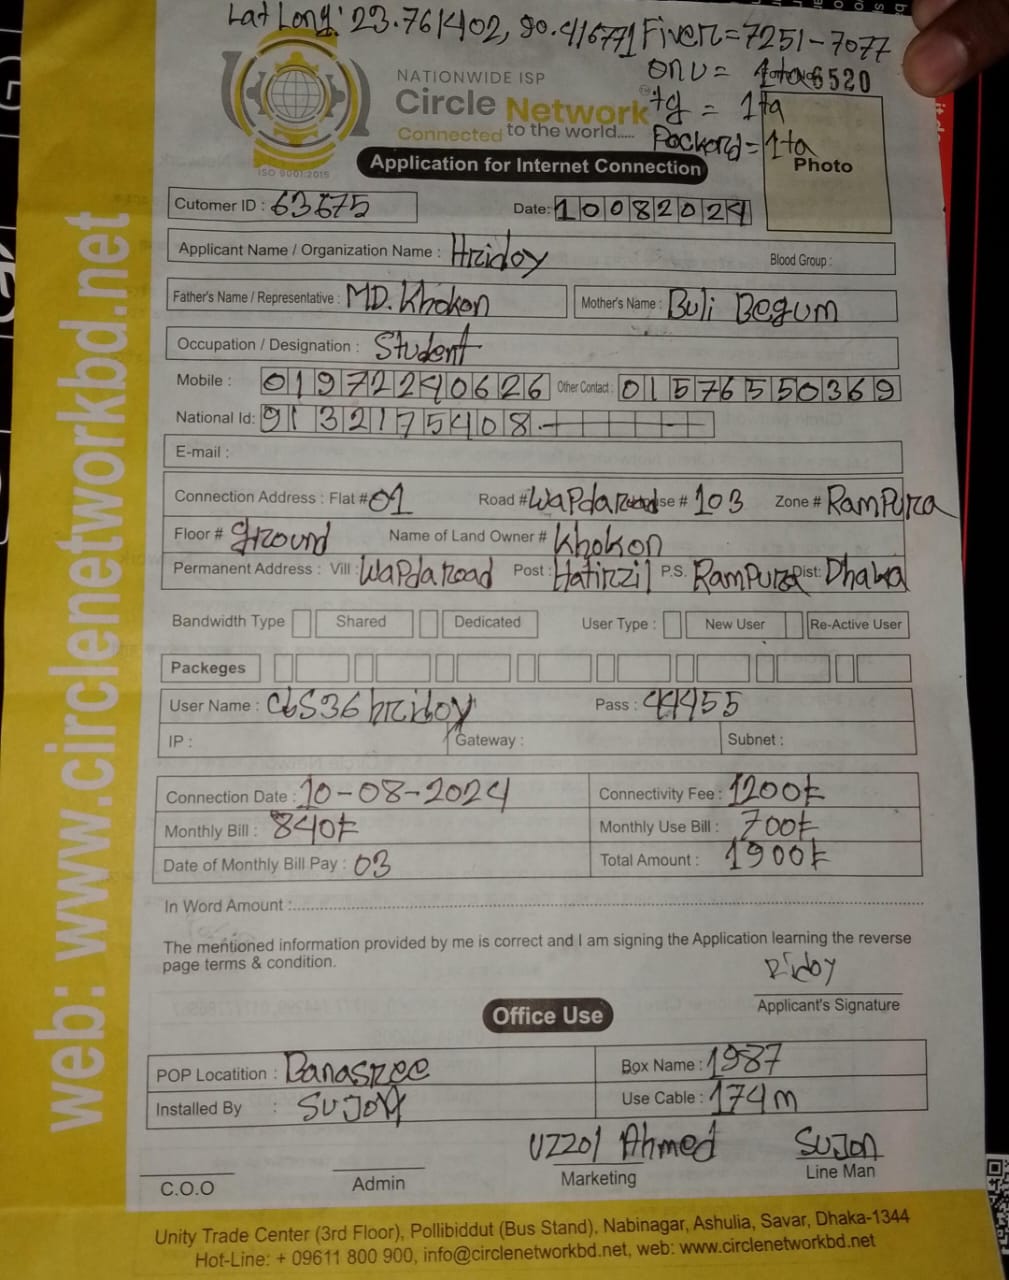 Lat Long: 23.761402, 90.416771 Fiver=7251-7077
onu = 1ta 6520
NATIONWIDE ISP
Circle Network
tg = 1ta
Connected to the world.....
Packord=1ta
ISO 9001:2015
Application for Internet Connection
Photo
Cutomer ID : 63675
Date: 10082024
Applicant Name / Organization Name : Hridoy
Blood Group :
Father's Name / Representative : MD. Khokon
Mother's Name : Buli Begum
Occupation / Designation : Student
Mobile : 01972240626 Other Contact : 01576550369
National Id: 9132175408
E-mail :
Connection Address : Flat # 01 Road # Wapda road se # 103 Zone # Rampura
Floor # ground Name of Land Owner # Khokon
Permanent Address : Vill : Wapda road Post : Hatirzil P.S. Rampura Dist: Dhaka
Bandwidth Type Shared Dedicated User Type : New User Re-Active User
Packeges
User Name : cbs36hridoy Pass : 44455
IP : Gateway : Subnet :
Connection Date : 10-08-2024 Connectivity Fee : 1200৳
Monthly Bill : 840৳ Monthly Use Bill : 700৳
Date of Monthly Bill Pay : 03 Total Amount : 1900৳
In Word Amount :
The mentioned information provided by me is correct and I am signing the Application learning the reverse
page terms & condition.
Ridoy
Applicant's Signature
Office Use
POP Locatition : Banasree Box Name : 1987
Installed By : SUJON Use Cable : 174m
Uzzol Ahmed SUJON
C.O.O Admin Marketing Line Man
Unity Trade Center (3rd Floor), Pollibiddut (Bus Stand), Nabinagar, Ashulia, Savar, Dhaka-1344
Hot-Line: + 09611 800 900, info@circlenetworkbd.net, web: www.circlenetworkbd.net
web: www.circlenetworkbd.net